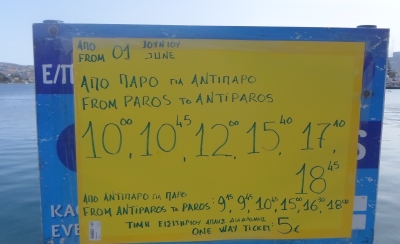 ΑΠΟ ΙΟΥΝΙΟΥ
FROM 01 JUNE
Ε/Π
ΑΠΟ ΠΑΡΟ ΓΙΑ ΑΝΤΙΠΑΡΟ
FROM PAROS TO ANTIPAROS
10 00, 10 45, 12 00, 15 40 17 10
18 45
ΑΠΟ ΑΝΤΙΠΑΡΟ ΓΙΑ ΠΑΡΟ
FROM ANTIPAROS TO PAROS: 9 15, 9 45, 10 45, 15 00 16 30 18 00
ΤΙΜΗ ΕΙΣΙΤΗΡΙΟΥ ΑΠΛΗΣ ΔΙΑΔΡΟΜΗΣ
ONE WAY TICKET: 5€
ΚΑ
EVE